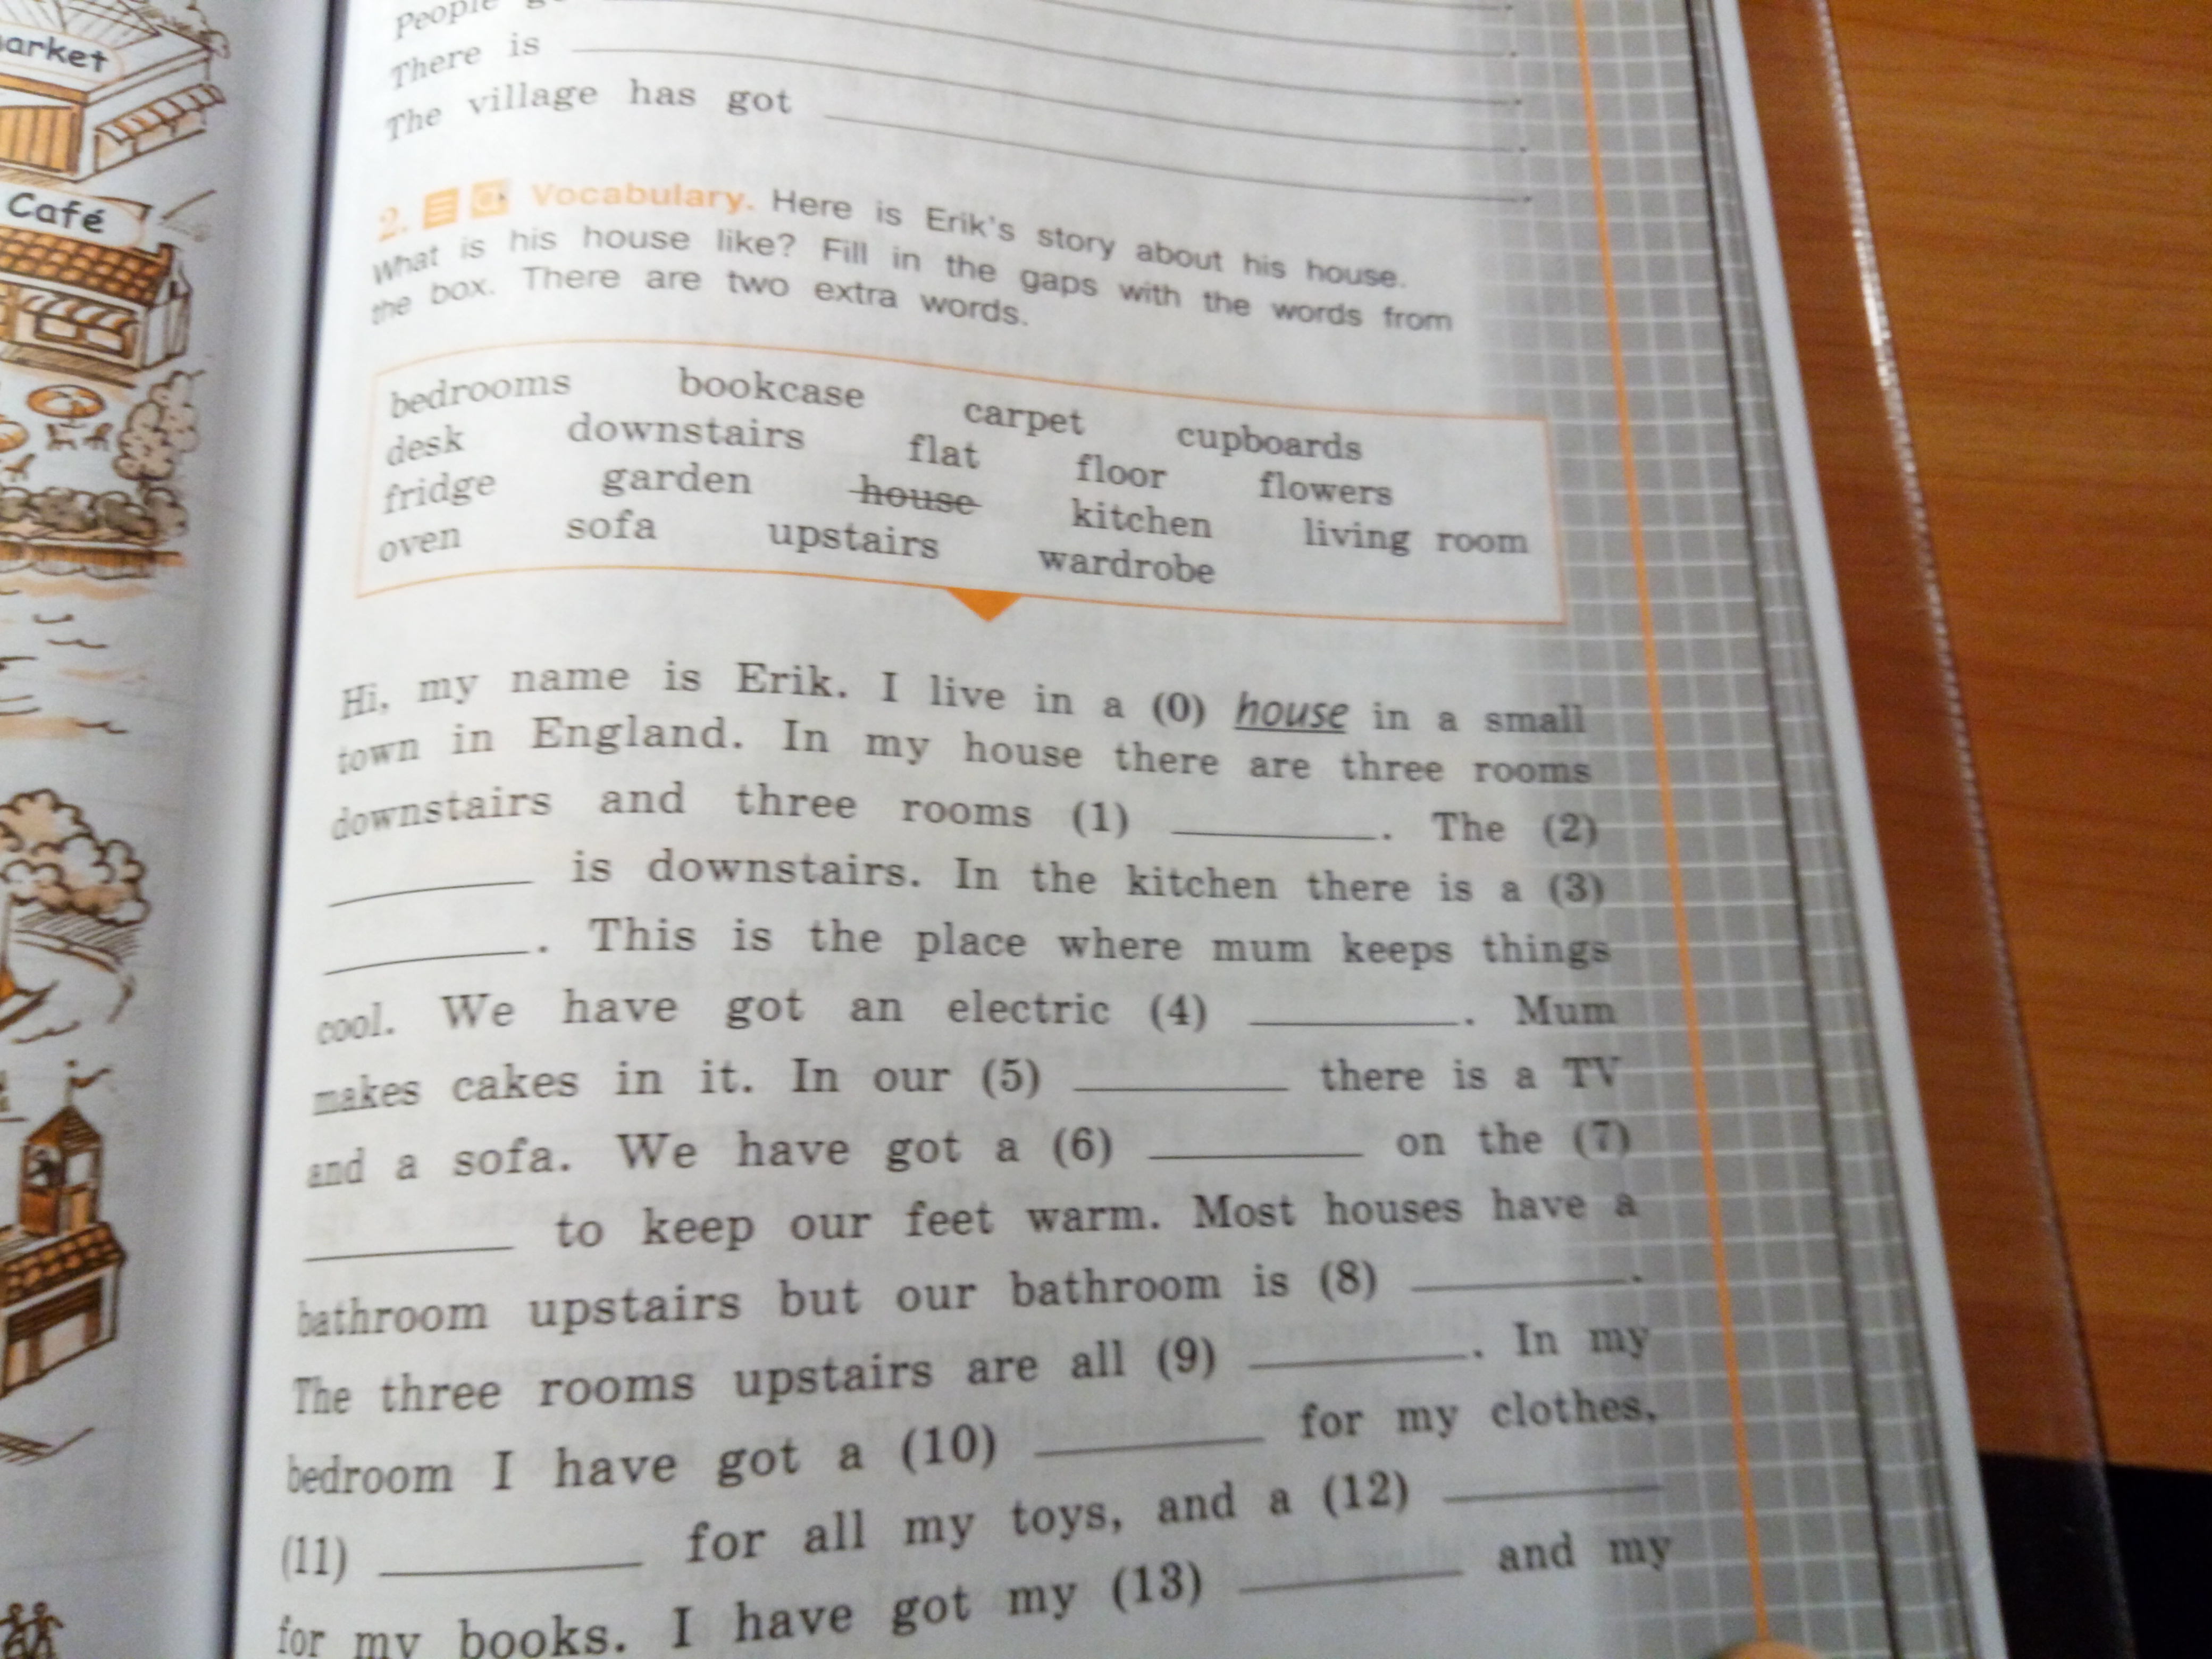 arket
Café
People
There is
The village has got
2. Vocabulary. Here is Erik's story about his house.
What is his house like? Fill in the gaps with the words from
the box. There are two extra words.
bedrooms bookcase carpet cupboards
desk downstairs flat floor flowers
fridge garden house kitchen living room
oven sofa upstairs wardrobe
Hi, my name is Erik. I live in a (0) house in a small
town in England. In my house there are three rooms
downstairs and three rooms (1) ________. The (2)
________ is downstairs. In the kitchen there is a (3)
________. This is the place where mum keeps things
cool. We have got an electric (4) ________. Mum
makes cakes in it. In our (5) ________ there is a TV
and a sofa. We have got a (6) ________ on the (7)
________ to keep our feet warm. Most houses have a
bathroom upstairs but our bathroom is (8) ________.
The three rooms upstairs are all (9) ________. In my
bedroom I have got a (10) ________ for my clothes,
(11) ________ for all my toys, and a (12) ________
for my books. I have got my (13) ________ and my